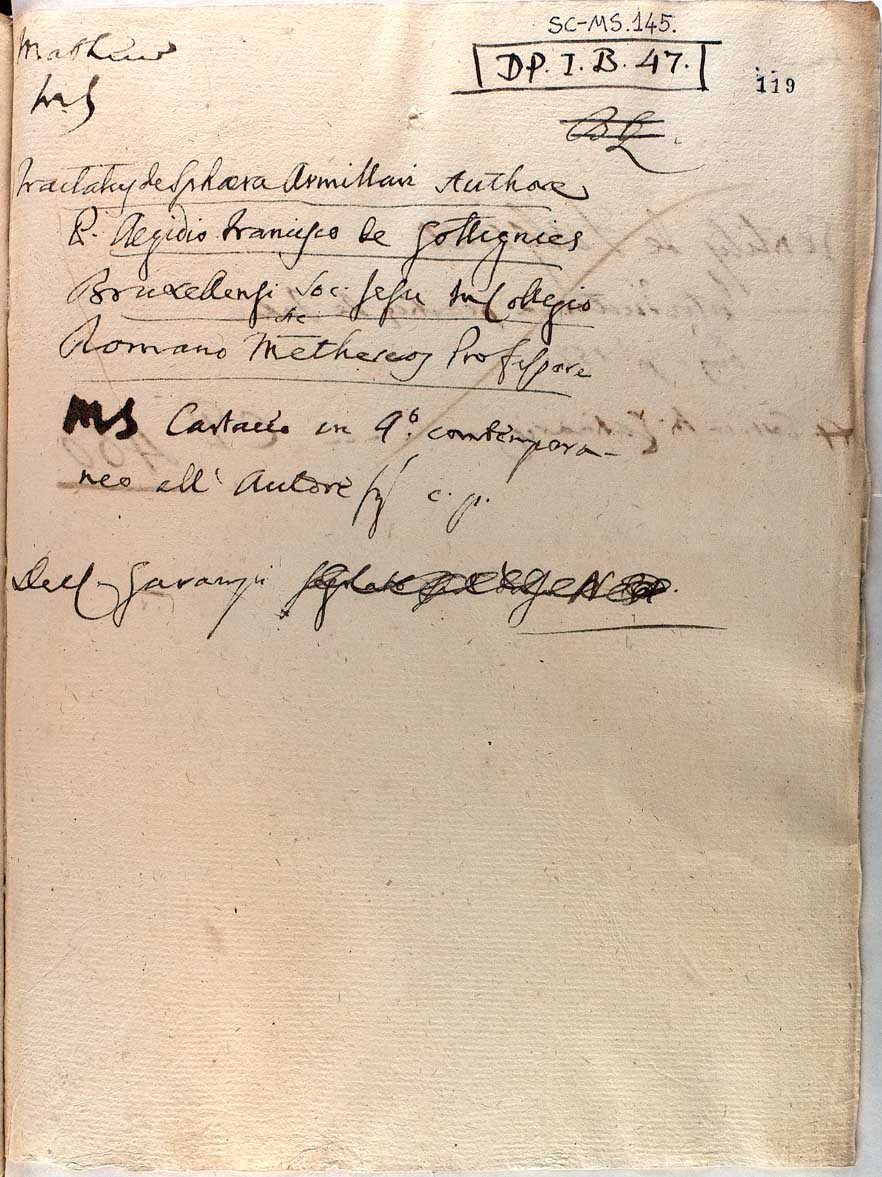 SC-MS.145.
DP. I. B. 47.
119
MS
Tractatus de Sphæra Armillari Authore
P. Aegidio Francisco de Gottignies
Bruxellensi Soc: Jesu in Collegio
Romano Metheseos Professore
MS Cartaceo in 4º. contempora-
neo all' Autore c. p.
Dell Garampi